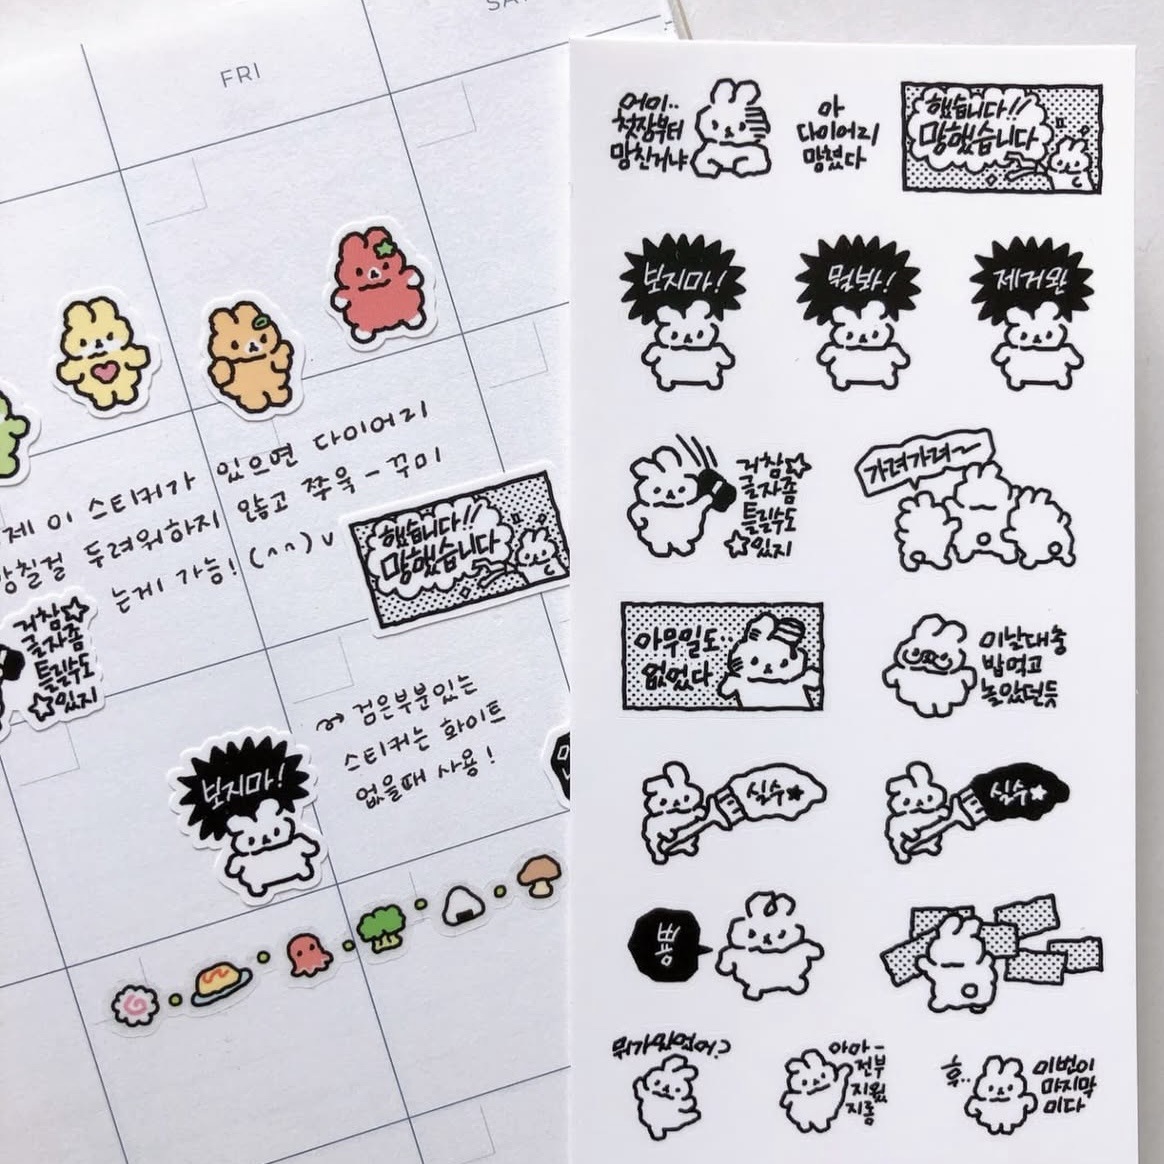 FRI
제 이 스티커가 있으면 다이어리
망칠걸 두려워하지 않고 쭈욱-꾸미
는게 가능! (^^)v
했습니다!!
망했습니다
거참☆
글자좀
틀릴수도
☆있지
보지마!
→검은부분있는
스티커는 화이트
없을때 사용!
어이..
첫장부터
망친거냐
아
다이어리
망쳤다
했습니다!!
망했습니다
보지마!
뭘봐!
제거완
거참☆
글자좀
틀릴수도
☆있지
가려가려~
아무일도..
없었다
이날대충
밥먹고
놀았던듯
실수★
실수★
뿅
뭐가있었어?
아마-
전부
지웠
지롱
후..
이번이
마지막
이다